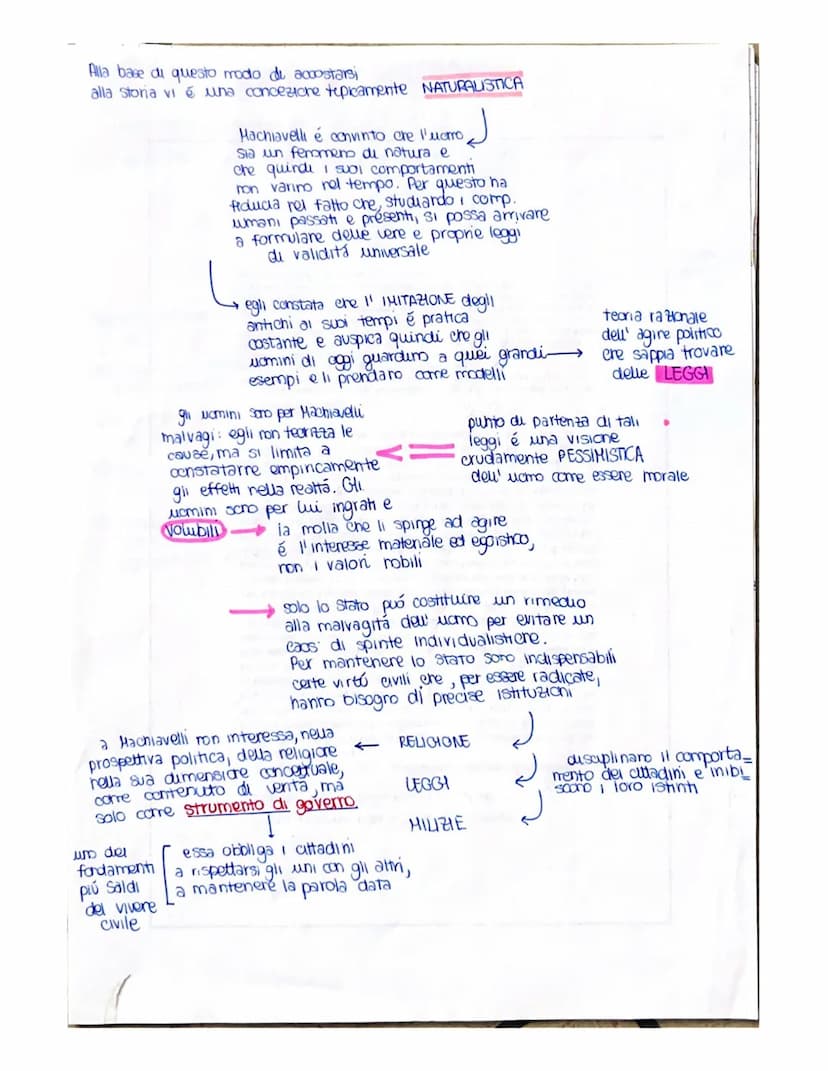 Alla base di questo modo di accostarsi
alla storia vi é una concezione tipicamente NATURALISTICA
Machiavelli é convinto che l'uomo
sia un fenomeno di natura e
che quindi i suoi comportamenti
non varino nel tempo. Per questo ha
fiducia nel fatto che, studiando i comp.
umani passati e presenti, si possa arrivare
a formulare delle vere e proprie leggi
di validitá universale
egli constata che l'IMITAZIONE degli
antichi ai suoi tempi é pratica
costante e auspica quindi che gli
uomini di oggi guardino a quei grandi
esempi e li prendano come modelli
teoria razionale
dell'agire politico
che sappia trovare
delle LEGGI
punto di partenza di tali
leggi é una visione
crudamente PESSIMISTICA
dell'uomo come essere morale
gli uomini sono per Machiavelli
malvagi: egli non teorizza le
cause, ma si limita a
constatarre empiricamente
gli effetti nella realtá. Gli
uomini sono per lui ingrati e
volubili
la molla che li spinge ad agire
é l'interesse materiale ed egoistico,
non i valori nobili
solo lo Stato puó costituire un rimedio
alla malvagitá dell'uomo per evitare un
caos di spinte individualistiche.
Per mantenere lo stato sono indispensabili
certe virtú civili che, per essere radicate,
hanno bisogno di precise istituzioni
RELIGIONE
LEGGI
MILIZIE
disciplinano il comporta=
mento dei cittadini e inibi_
scono i loro istinti
a Machiavelli non interessa, nella
prospettiva politica, della religione
nella sua dimensione concettuale,
come contenuto di veritá, ma
solo come strumento di governo.
essa obbliga i cittadini
a rispettarsi gli uni con gli altri,
a mantenere la parola data
uno dei
fondamenti
piú saldi
del vivere
civile